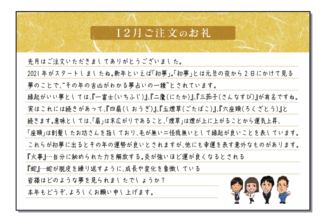 12月ご注文のお礼
先月はご注文いただきましてありがとうございました。
2021年がスタートしましたね。新年といえば「初夢」。「初夢」とは元旦の夜から2日にかけて見る
夢のことで、“その年の吉凶がわかる夢占いの一種”とされています。
縁起がいい夢としては、『一富士(いちふじ)』、『二鷹(にたか)』、『三茄子(さんなすび)』が有名ですね。
実はこれには続きがあって、『四扇(しおうぎ)』、『五煙草(ごたばこ)』、『六座頭(ろくざとう)』と
続きます。意味としては、「扇」は末広がりであること、「煙草」は煙が上に上がることから運気上昇、
「座頭」は剃髪したお坊さんを指しており、毛が無い=怪我無いとして縁起が良いことを表しています。
これらが初夢に出るとその年の運勢が良いとされますが、他にも幸運を表す意外なものがあります。
『火事』…自分に秘められた力を解放する。炎が強いほど運が良くなるとされる
『蛇』…蛇が脱皮を繰り返すように、成長や変化を象徴している
皆様はどのような夢を見られましたでしょうか?
本年もどうぞ、よろしくお願い申し上げます。